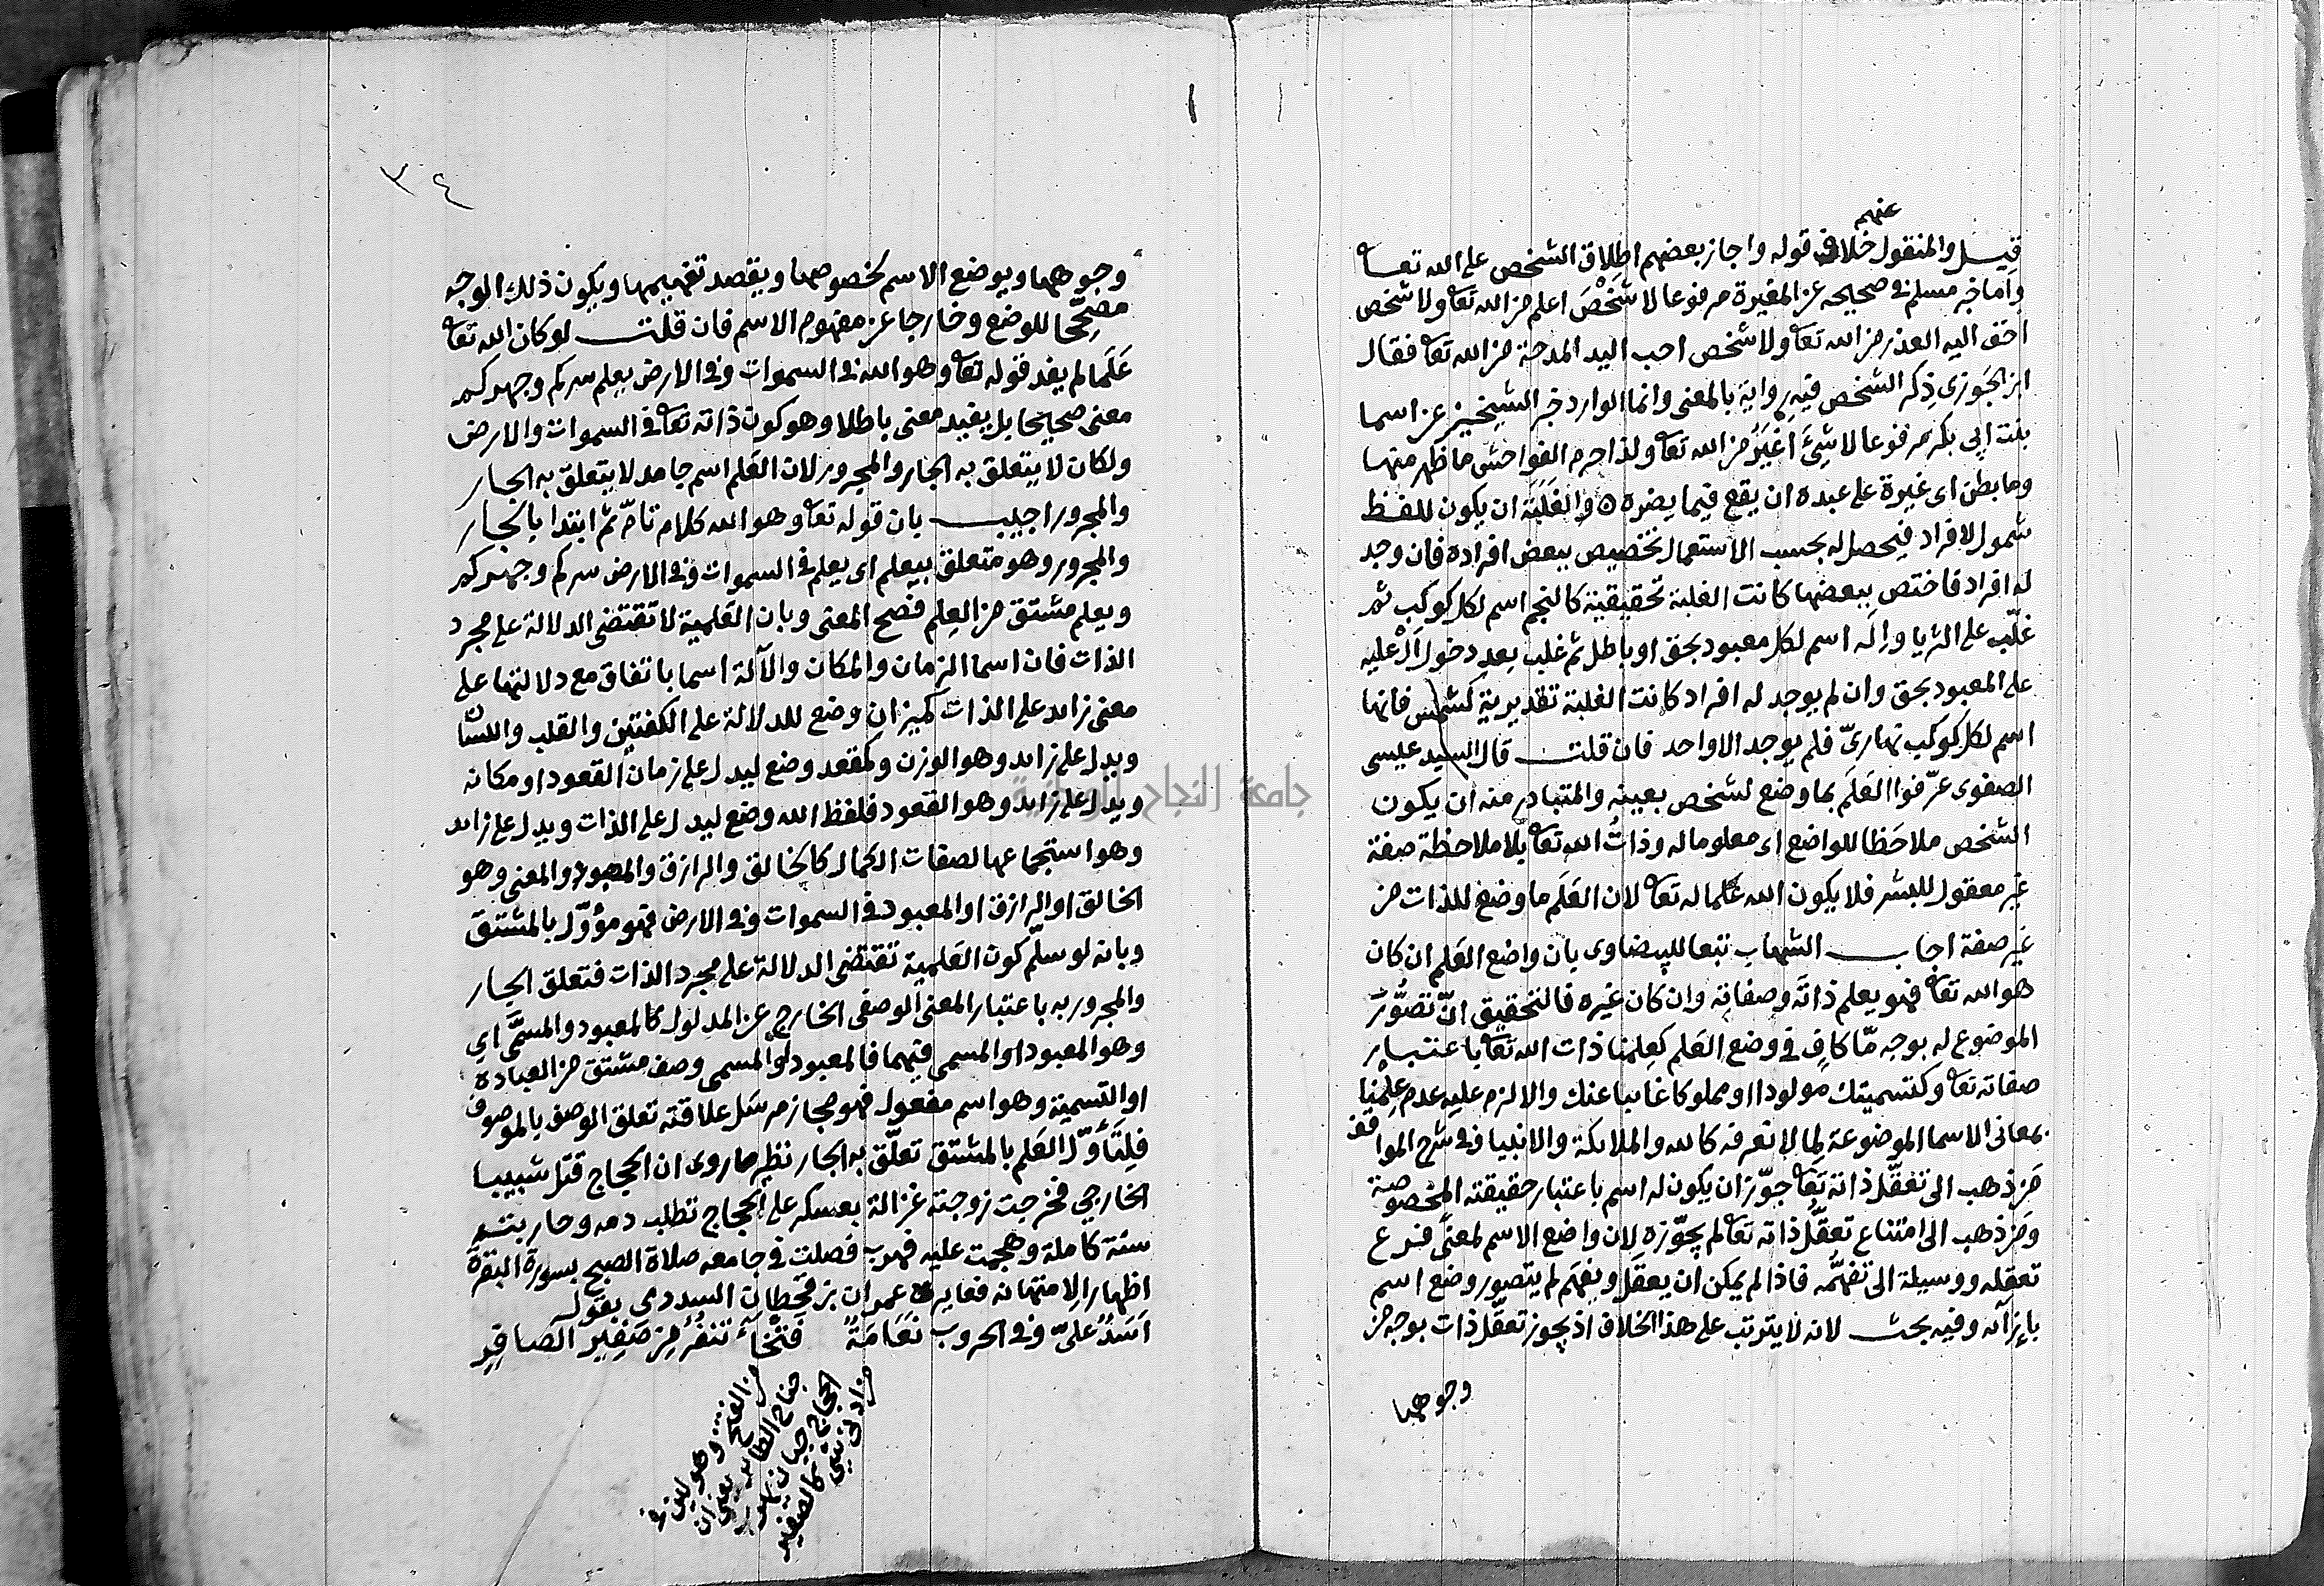 عنهم
قيل والمنقول خلاف قوله واجاز بعضهم اطلاق الشخص على الله تعا
واما خبر مسلم فى صحيحه عن المغيرة مرفوعا لا شَخْصَ اعلم من الله تعا ولا شخص
احق اليه العذر من الله تعا ولا شخص احب اليه المدحة من الله تعا فقال
ابن الجَوزى ذِكر الشخص فيه رواية بالمعنى وانما الوارد خبر الشيخين عن اسما
بنت ابى بكر مرفوعا لا شِئَ اغيَرُ من الله تعا ولذا حرم الفواحش ما ظهر منها
وما بطن اى غيرة على عبده ان يقع فيما يضره ٥ والغَلَبَة ان يكون للفظ
شمول لافراد فيحصل له بحسب الاستعمال تخصيص ببعض افراده فان وجد
له افراد فاختص ببعضها كانت الغلبة تحقيقية كالنجم اسم لكل كوكب ثم
غلّب على الثريا وإلَه اسم لكل معبود بحق او باطل ثم غلب بعد دخول اَلْ عليه
على المعبود بحق وان لم يوجد له افراد كانت الغلبة تقديرية كشمس فانها
اسم لكل كوكب نهارىّ فلم يوجد الا واحد فان قلت قال السيد عيسى
الصفوى عرّفوا العَلَم بما وضع لشخص بعينه والمتبادر منه ان يكون
الشخص ملاحَظا للواضع اى معلوما له وذاتُ الله تعا بلا ملاحظة صفة
غير معقول للبشر فلا يكون الله علما له تعا لان العَلَم ما وضع للذات من
غير صفة اجاب الشهاب تبعا للبيضاوى بان واضع العَلم ان كان
هو الله تعا فهو يعلم ذاتَه وصفاته وان كان غيره فالتحقيق انّ تصَوُّرَ
الموضوع له بوجه مّا كافٍ فى وضع العَلم كعِلمنا ذات الله تعا باعتبار
صفاته تعا وكتسميتك مولودا او مملوكا غايبا عنك والا لزم عليه عدم عِلمنا
بمعانى الاسما الموضوعة لما لا نعرفه كالله والملائكة والانبيا وفى شرح المواقف
مَن ذهب الى تعقّل ذاته تعا جوّز ان يكون له اسم باعتبار حقيقته المخصوصة
ومَن ذهب الى امتناع تعقّل ذاته تعا لم يجوّزه لان واضع الاسم لمعنًى فرع
تعقله ووسيلة الى تفهّمه فاذا لم يمكن ان يعقل ويفهم لم يتصور وضع اسم
بإزآئه وفيه بحث لانه لا يترتب على هذا الخلاف اذ يجوز تعقّل ذات بوجه من
وجوهها
٣٤
وجوهها ويوضع الاسم لخصوصها ويقصد تفهيمها ويكون ذلك الوجه
مصحِّحا للوضع وخارجا عن مفهوم الاسم فان قلت لو كان الله تعا
عَلَما لم يفد قوله تعا وهو الله فى السموات وفى الارض يعلم سركم وجهركم
معنى صحيحا بل يفيد معنى باطلا وهو كون ذاته تعا فى السموات والارض
ولكان لا يتعلق به الجار والمجرور لان العَلم اسم جامد لا يتعلق به الجار
والمجرور اجيب بان قوله تعا وهو الله كلام تامّ ثم ابتدا بالجار
والمجرور وهو متعلق بيعلم اى يعلم فى السموات وفى الارض سركم وجهركم
ويعلم مشتق من العِلم فصح المعنى وبان العَلمية لا تقتضى الدلالة على مجرد
الذات فان اسما الزمان والمكان والآلة اسما باتفاق مع دلالتها على
معنى زائد على الذات كميزان وضع للدلالة على الكفتين والقلب واللسان
ويدل على زائد وهو الوزن وكمقعد وضع ليدل على زمان القعود او مكانه
ويدل على زائد وهو القعود فلفظ الله وضع ليدل على الذات ويدل على زائد
وهو استجماعها لصفات الكمال كالخالق والرازق والمعبود والمعنى وهو
الخالق او الرازق او المعبود فى السموات وفى الارض فهو مؤوّل بالمشتق
وبانه لو سلّم كون العَلمية تقتضى الدلالة على مجرد الذات فتعلق الجار
والمجرور به باعتبار المعنى الوصفى الخارج عن المدلول كالمعبود والمسمَّى اى
وهو المعبود او المسمى فيهما فالمعبود او المسمى وصف مشتق من العبادة
او التسمية وهو اسم مفعول فهو مجاز مرسَل علاقته تعلق الوصف بالموصوف
فلِتأوّل العَلم بالمشتق تعلّق به الجار نظير ما روى ان الحجاج قتل شبيبا
الخارجى فخرجت زوجته غزالة بعسكر على الحجاج تطلب دمه وحاربته
سنة كاملة وهجمت عليه فهرب فصلت فى جامعه صلاة الصبح بسورة البقرة
اظهارا لامتهانه فعايره عمران بن قحطان السدوى بقول
اَسَدٌ علىّ وفى الحروب نعَامَةٌ فَتْخآءُ تنفرُ من صَفِير الصَافِرِ
من الفتخ وهو لين فى
جناح الطائر يعنى ان
الحجاج جبان يهرب
من ادنى شئ كالصفير